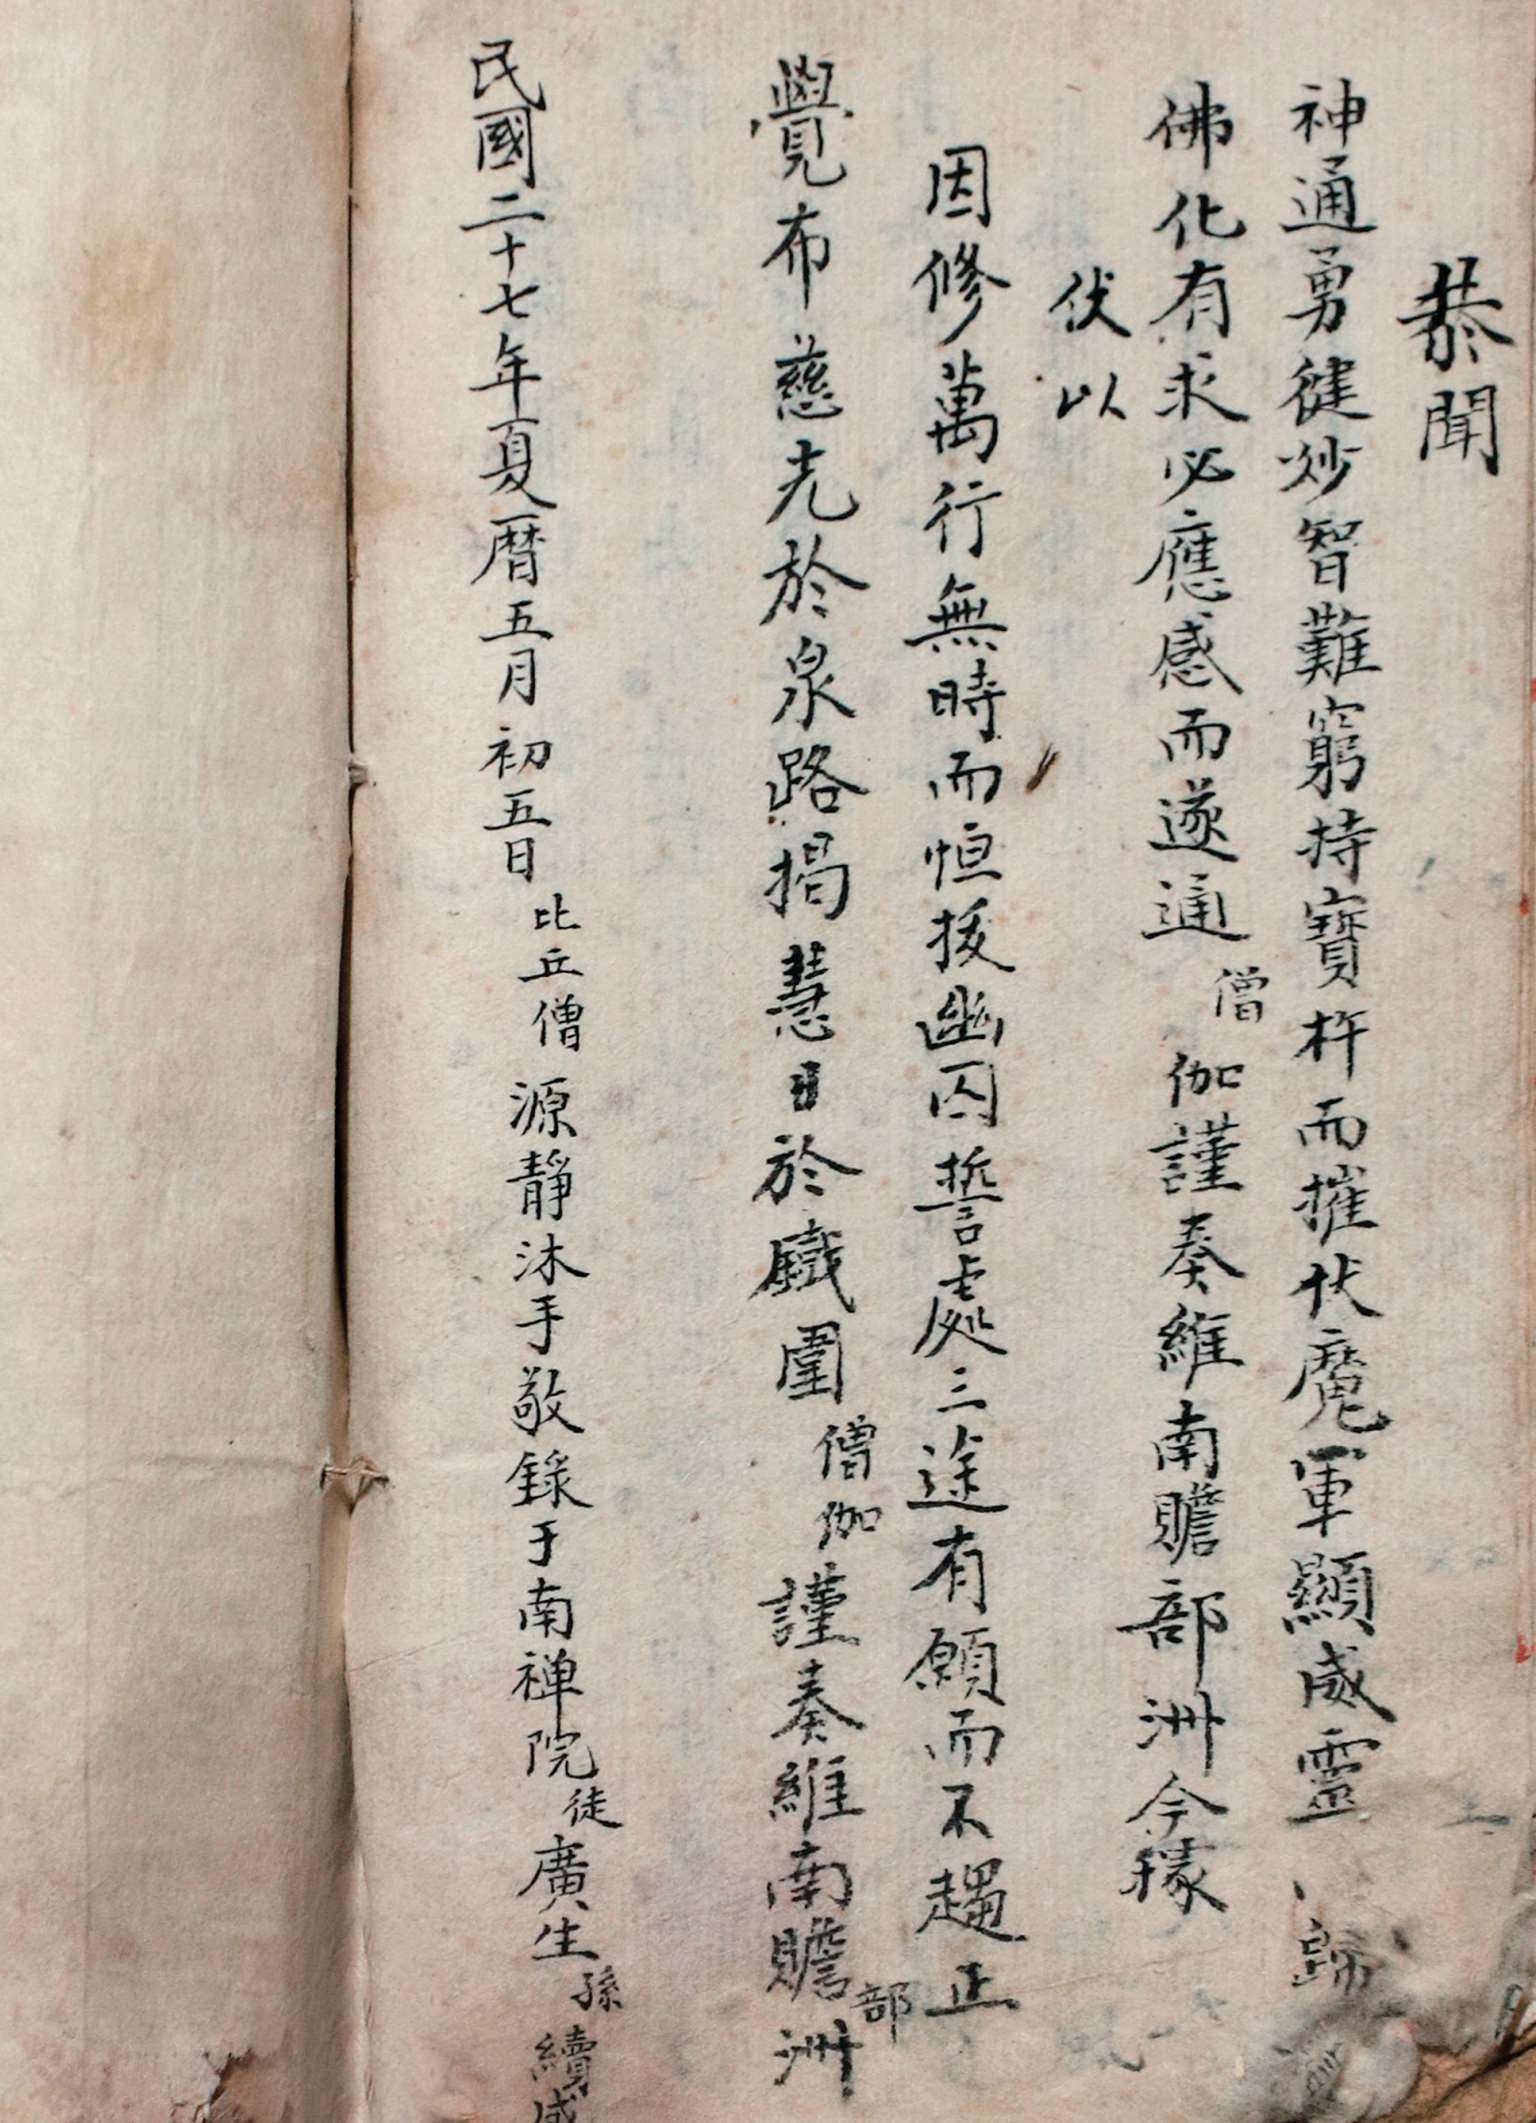 恭聞
神通勇健妙智難窮持寶杵而摧伏魔軍顯威靈 歸
佛化有求必應感而遂通僧伽謹奏維南贍部洲今據
伏以
因修萬行無時而恒援幽囚誓處三途有願而不趨正
覺布慈光於泉路揭慧日於鐵圍僧伽謹奏維南贍部洲
民國二十七年夏曆五月初五日比丘僧源靜沐手敬錄于南禅院徒廣生孫續